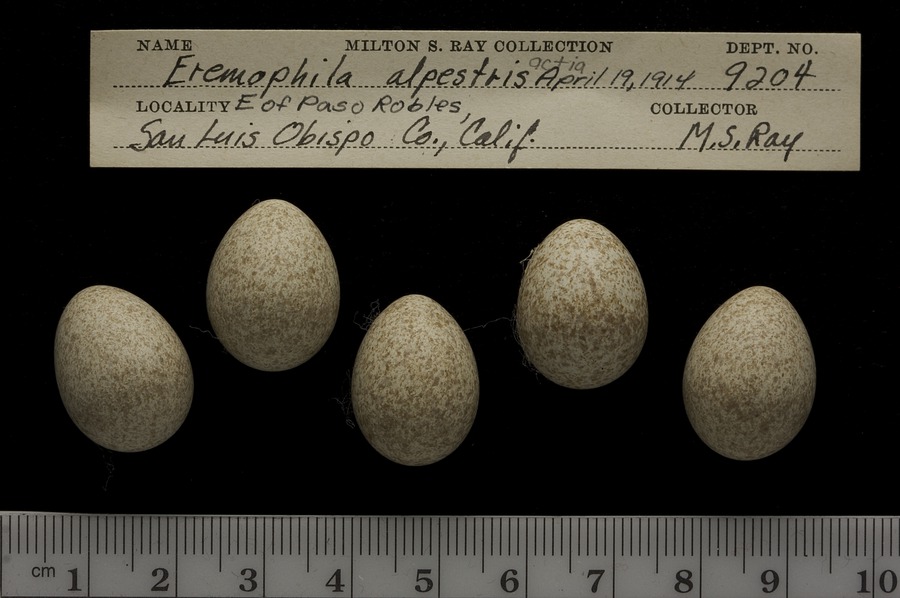 NAME MILTON S. RAY COLLECTION DEPT. NO.
Eremophila alpestris actia April 19, 1914 9204
LOCALITY E of Paso Robles, COLLECTOR
San Luis Obispo Co., Calif. M.S. Ray
cm 1 2 3 4 5 6 7 8 9 10